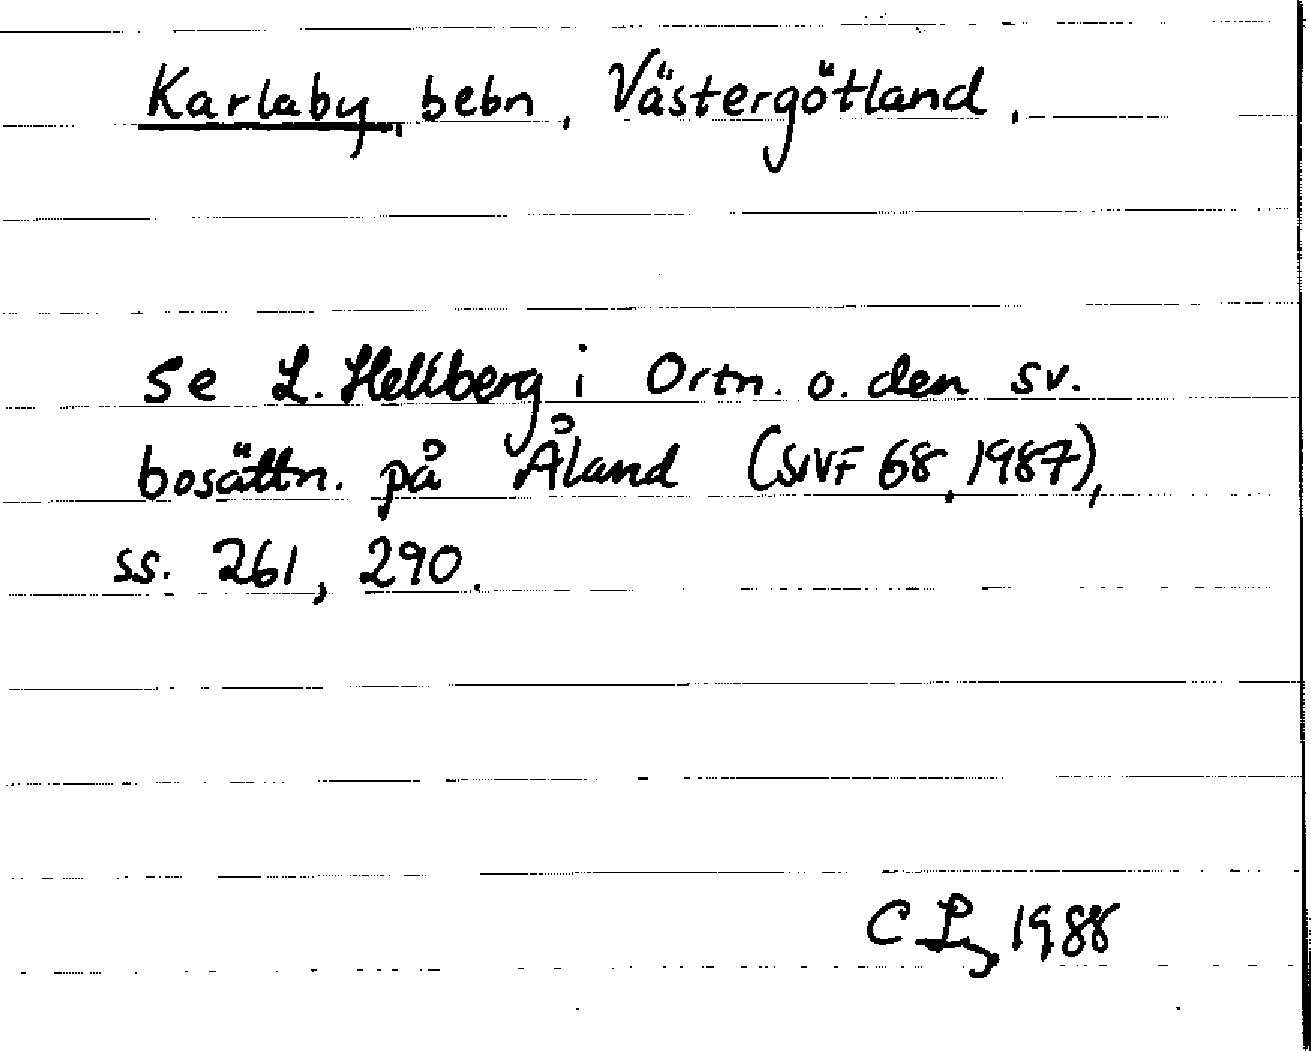 Karlaby, bebn, Västergötland.
se L. Hellberg i Ortn. o. den sv.
bosättn. på Åland (SNF 68, 1987),
ss. 261, 290.
C L 1988